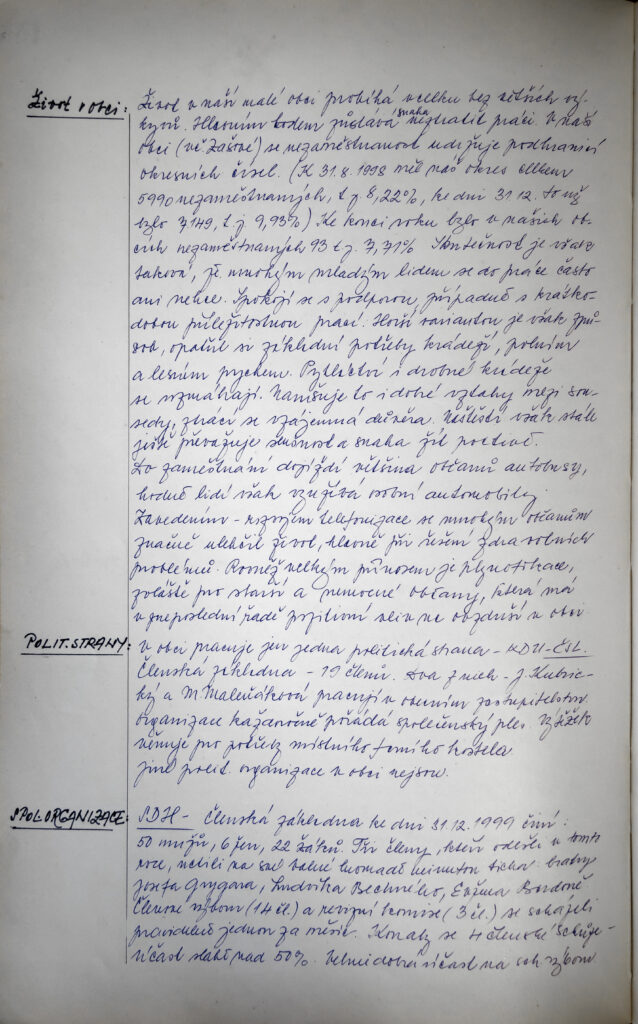 Život v obci: Život v naší malé obci probíhá vcelku bez větších vý-
kyvů. Hlavním bodem zůstává snaha neztratit práci. V naší
obci (vč. Zašové) se nezaměstnanost udržuje pod hranicí
okresních čísel. (K 31.8.1998 měl náš okres celkem
5990 nezaměstnaných, t.j. 8,22%, ke dni 31.12. to už
bylo 7149, t.j. 9,93%) Ke konci roku bylo v našich ob-
cích nezaměstnaných 93 t.j. 7,71% Skutečnost je však
taková, že mnohým mladým lidem se do práce často
ani nechce. Spokojí se s podporou, případně s krátko-
dobou příležitostnou prací. Horší variantou je však způ-
sob, opatřit si základní potřeby krádeží, polním
a lesním pychem. Pytláctví i drobné krádeže
se rozmáhají. Narušuje to i dobré vztahy mezi sou-
sedy, ztrácí se vzájemná důvěra. Naštěstí však stále
ještě převažuje slušnost a snaha žít poctivě.
Do zaměstnání dojíždí většina občanů autobusy,
hodně lidí však využívá osobní automobily.
Zavedením - rozvojem telefonizace se mnohým občanům
značně ulehčil život, hlavně při řešení zdravotních
problémů. Rovněž velkým přínosem je plynofikace,
zvláště pro starší a nemocné občany, která má
v neposlední řadě pozitivní vliv na ovzduší v obci.
POLIT. STRANY: V obci pracuje jen jedna politická strana - KDU-ČSL.
Členská základna - 19 členů. Dva z nich - J. Kubric-
ký a M. Malenčáková pracují v obecním zastupitelstvu.
Organizace každoročně pořádá společenský ples. Výtěžek
věnuje pro potřeby místního farního kostela
Jiné polit. organizace v obci nejsou.
SPOL. ORGANIZACE: SDH - Členská základna ke dni 31.12.1999 činí:
50 mužů, 6 žen, 22 žáků. Tři členy, kteří odešli v tomto
roce, uctili na své valné hromadě minutou ticha: bratry
Josefa Grygara, Ludvíka Bechného, Evžena
Členové výboru (14 čl.) a revizní komise (3 čl.) se scházeli
pravidelně jednou za měsíc. Konaly se 4 členské schůze -
účast slabě nad 50%. Velmi dobrá účast na sch. výboru.